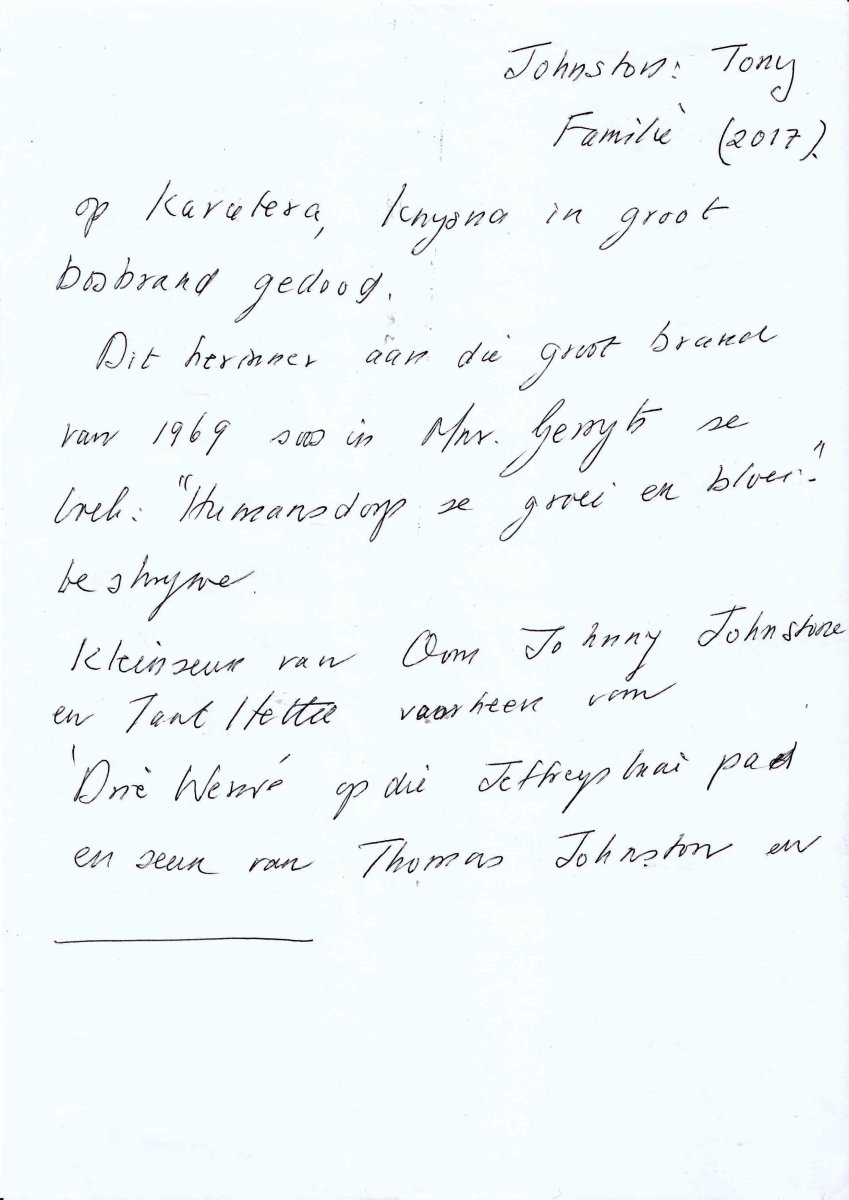 Johnston: Tony
Familie (2017).
op Karatera, Knysna in groot
bosbrand gedood.
Dit herinner aan die groot brand
van 1969 soos in Mnr. Gerryts se
boek: "Humansdorp se groei en bloei."
beskrywe.
Kleinseun van Oom Johnny Johnstone
en Tant Hettie voorheen van
'Drië Werwe' op die Jeffreysbaai pad
en seun van Thomas Johnston en